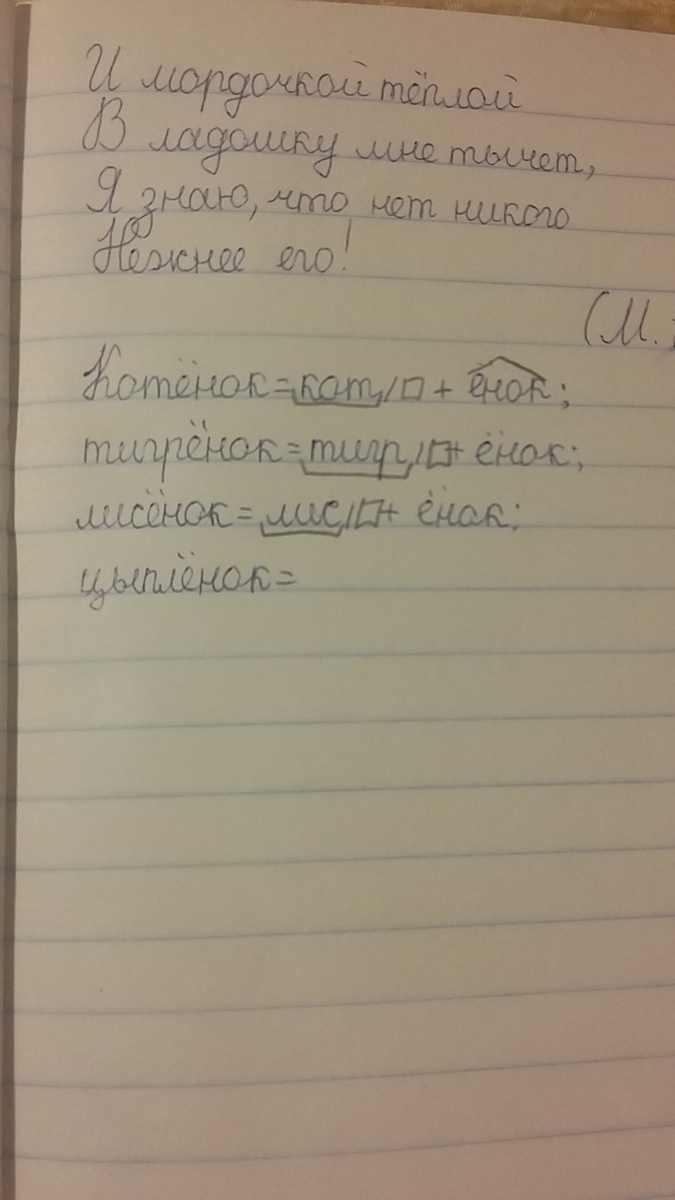 И мордочкой тёплой
В ладошку мне тычет,
Я знаю, что нет никого
Нежнее его!
(М.
Котёнок=кот/□ + ёнок;
тигрёнок=тигр/□+ ёнок;
лисёнок=лис/□+ ёнок;
цыплёнок=